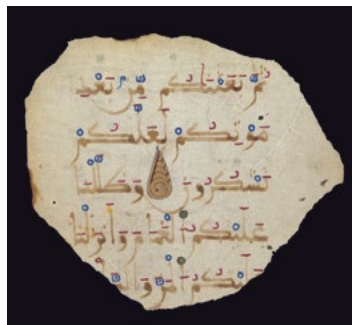 ثُمَّ بَعَثْنَٰكُم مِّنۢ بَعْدِ
مَوْتِكُمْ لَعَلَّكُمْ
تَشْكُرُونَ وَظَلَّلْنَا
عَلَيْكُمُ الْغَمَامَ وَأَنزَلْنَا
عَلَيْكُمُ الْمَنَّ